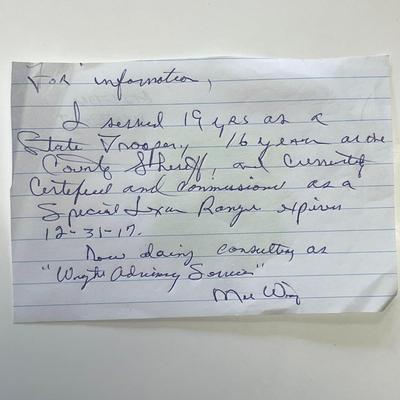 For information,
I served 19 yrs as a
State Trooper, 16 years as the
County Sheriff, and Currently
Certified and Commissioned as a
Special Texas Ranger expires
12-31-17.
Now doing consulting as
Advisory Services"